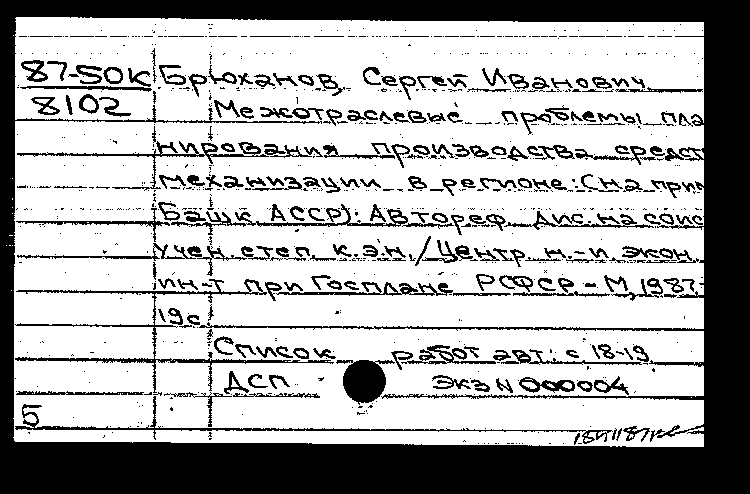 87-50К Брюханов, Сергей Иванович
8102 Межотраслевые проблемы пла
нирования производства средст
механизации в регионе: (На прим
Башк. АССР): Автореф. дис. на соис
учен. степ. к.э.н. / Центр. н.-и. экон.
ин-т при Госплане РСФСР. - М, 1987. -
19 с.
Список работ авт.: с. 18-19
ДСП Экз N 000004
5